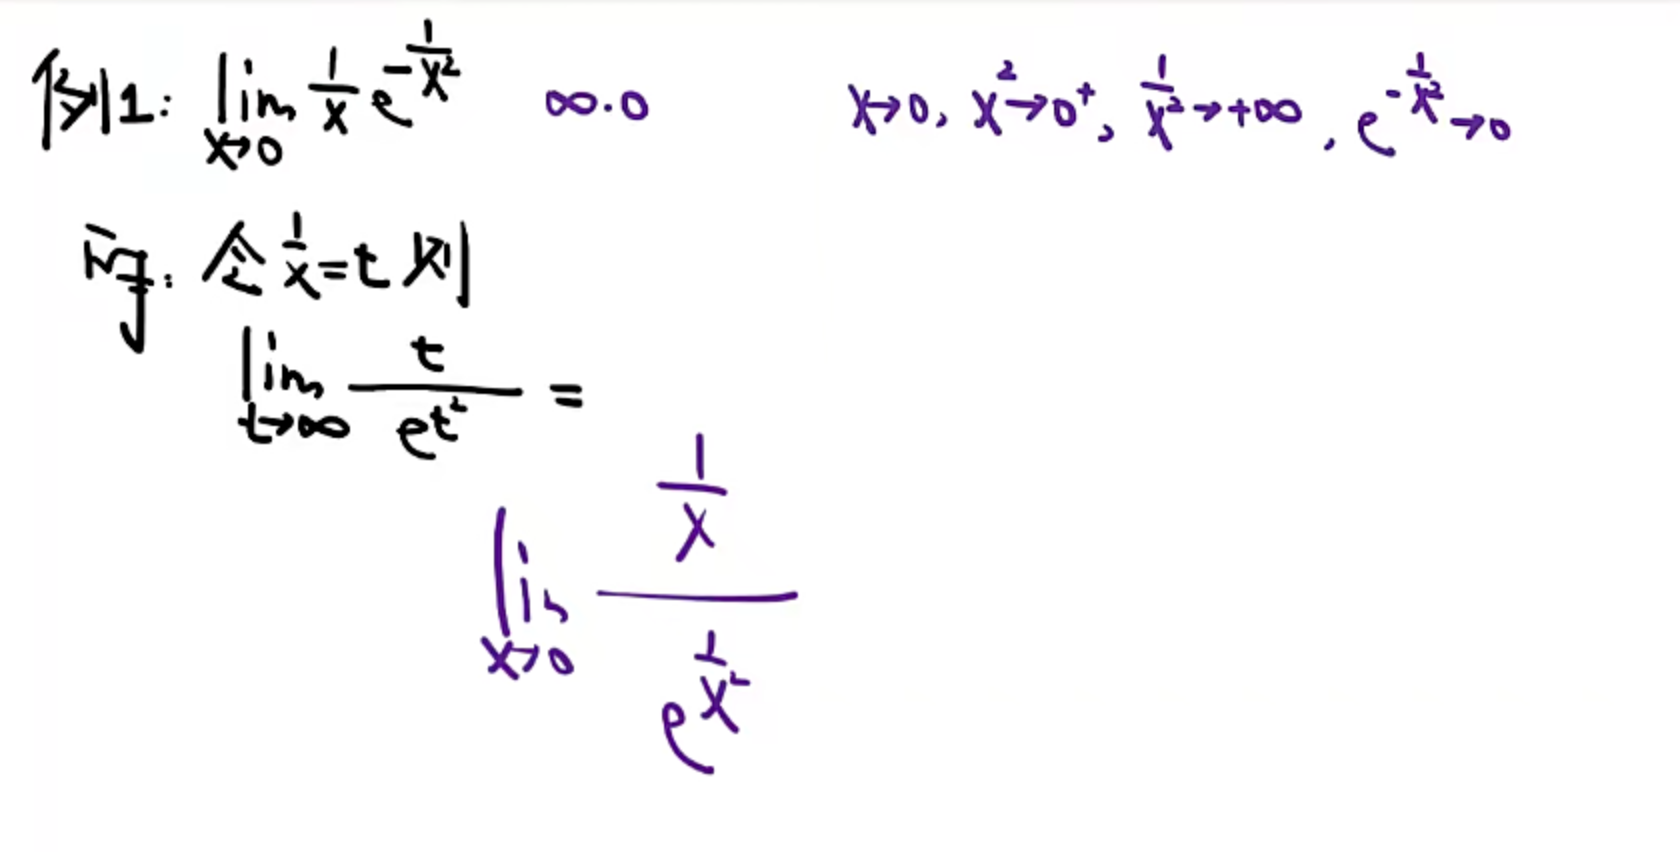 例1: lim_{x→0} \frac{1}{x} e^{-\frac{1}{x^2}} ∞·0 x→0, x^2→0^+, \frac{1}{x^2}→+∞, e^{-\frac{1}{x^2}}→0
令 \frac{1}{x}=t 则
lim_{t→∞} \frac{t}{e^{t^2}} =
lim_{x→0} \frac{\frac{1}{x}}{e^{\frac{1}{x^2}}}